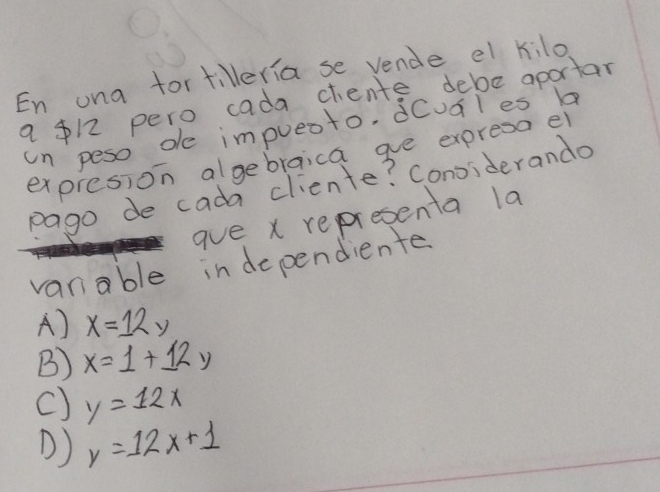 En una tortillería se vende el kilo
a $12 pero cada cliente debe aportar
un peso de impuesto. ¿Cuál es la
expresión algebraica que expresa el
pago de cada cliente? Considerando
que x representa la
variable independiente
A) x=12y
B) x=1+12y
C) y=12x
D) y=12x+1